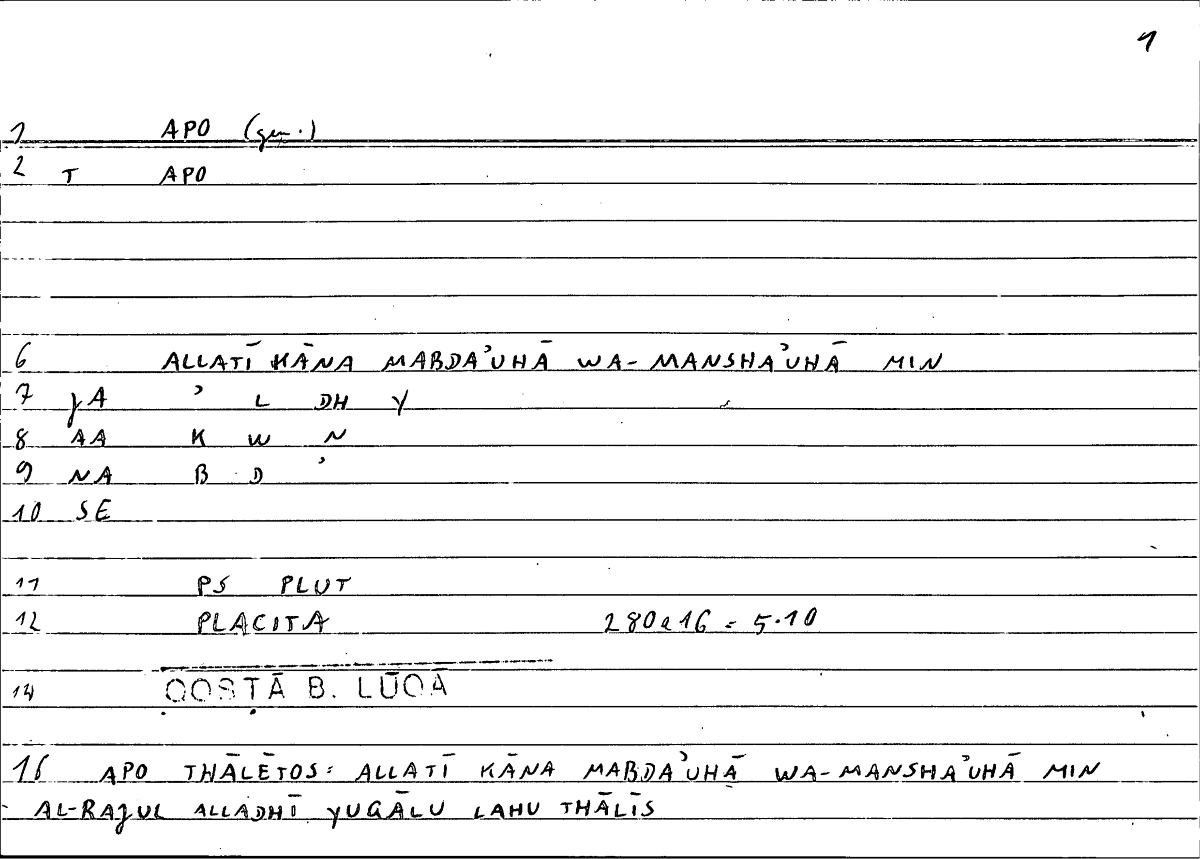 1
1 APO (gen.)
2 T APO
6 ALLATĪ KĀNA MABDAʾUHĀ WA-MANSHAʾUHĀ MIN
7 JA ʾ L DH Y
8 AA K W N
9 NA B D ʾ
10 SE
11 PS PLUT
12 PLACITA 280a16 = 5.10
14 QOSṬĀ B. LŪQĀ
16 APO THĀLĒTOS: ALLATĪ KĀNA MABDAʾUHĀ WA-MANSHAʾUHĀ MIN
AL-RAJUL ALLADHĪ YUQĀLU LAHU THĀLĪS